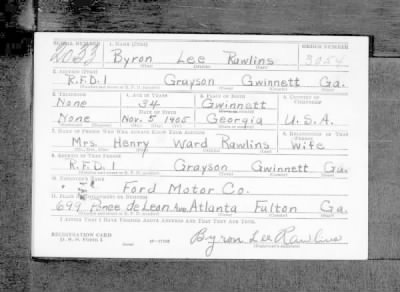 SERIAL NUMBER 1. NAME (Print) ORDER NUMBER
2033 Byron Lee Rawlins 3054
(First) (Middle) (Last)
2. ADDRESS (Print)
R.F.D. 1 Grayson Gwinnett Ga.
3. TELEPHONE 4. AGE IN YEARS 5. PLACE OF BIRTH 6. COUNTRY OF CITIZENSHIP
None 34 Gwinnett
DATE OF BIRTH
None Nov. 5 1905 Georgia U.S.A.
7. NAME OF PERSON WHO WILL ALWAYS KNOW YOUR ADDRESS 8. RELATIONSHIP OF THAT PERSON
Mrs. Henry Ward Rawlins Wife
9. ADDRESS OF THAT PERSON
R.F.D. 1 Grayson Gwinnett Ga.
10. EMPLOYER'S NAME
Ford Motor Co.
11. PLACE OF EMPLOYMENT OR BUSINESS
699 Ponce de Leon Ave Atlanta Fulton Ga.
I AFFIRM THAT I HAVE VERIFIED ABOVE ANSWERS AND THAT THEY ARE TRUE.
REGISTRATION CARD
D. S. S. Form 1 Byron Lee Rawlins
(Registrant's signature)